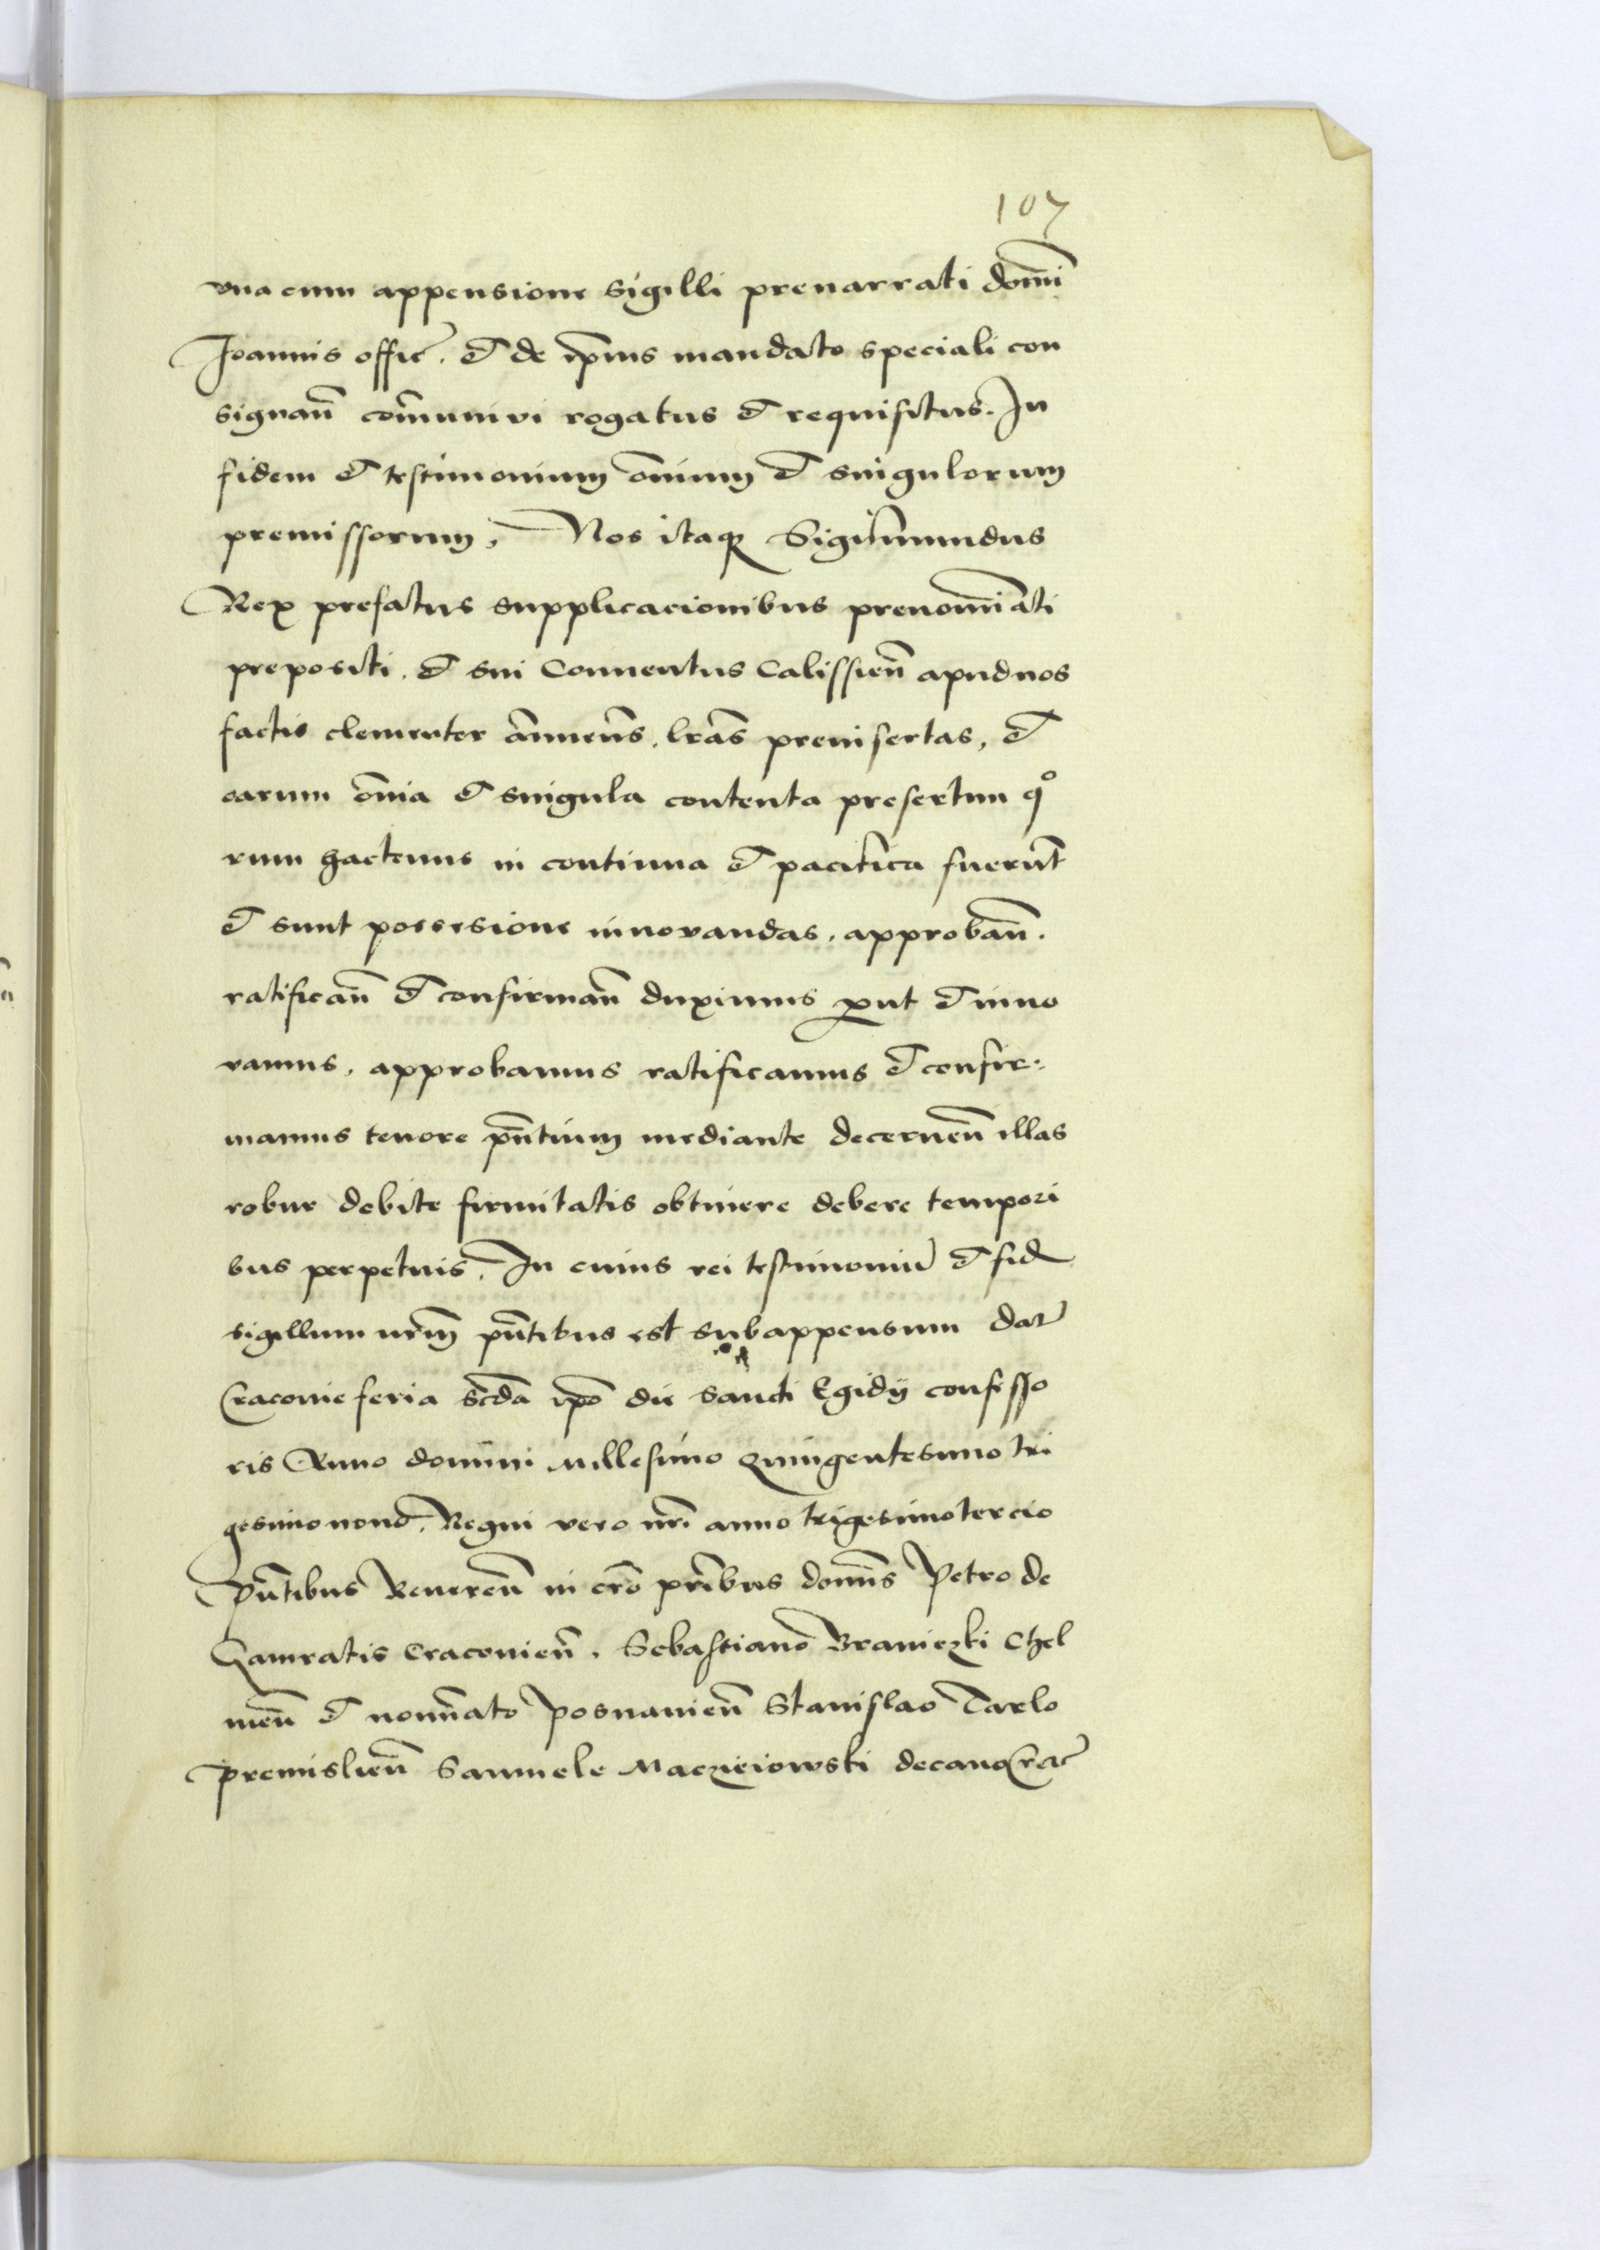 107
vna cum appensione sigilli prenarrati dom̄i
Joannis offic̄. et de ip̄ius mandato speciali con
signan̄ com̄univi rogatus et requisitus. In
fidem et testimonium om̄ium et singulorum
premissorum, Nos itaq; Sigism̄undus
Rex prefatus supplicacionibus prenomīati
prepositi. et sui Conuentus Calissien̄ apud nos
factis clementer annuen̄s. lr̄as preinsertas, et
earum om̄ia et singula contenta presertim qᵒ
rum hactenus in continua et pacifica fuerūt
et sunt possesione innovandas. approban̄.
ratifican̄ et confirman̄ duximus ꝓut et inno
vamus. approbamus ratificamus et confir:
mamus tenore pn̄tium mediante decernen̄ illas
robur debite firmitatis obtinere debere tempori
bus perpetuis. In cuius rei testimoniū et fid
sigillum nr̄m pn̄tibus est subappensum dat̄
Cracovie feria sc̄da ip̄o die sancti Egidÿ confesso
ris Anno domini millesimo quingentesimo tri
gesimo nono. Regni vero nr̄i anno trigesimotercio
Pn̄tibus Reveren̄ in cr̄o pr̄ibus domi͞s Petro de
Gamratis Cracovien̄. Sebastiano Braniczki Chel
men̄ et nomīnato Posnanien̄ Stanislao Tarlo
premislien̄ Samuele Maczieiowski decano Crac̄